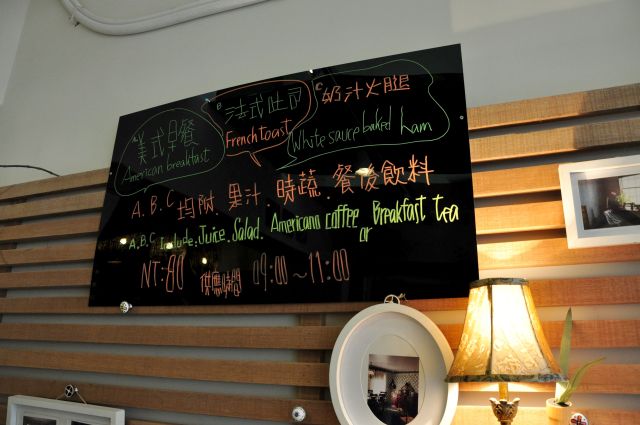 A 美式早餐
American breakfast
B 法式吐司
French toast
C 奶汁火腿
White sauce baked ham
A.B.C 均附.果汁.時蔬.餐後飲料
A.B.C. Include.Juice.Salad. Americano coffee or Breakfast tea
NT:80 供應時間 09:00～11:00